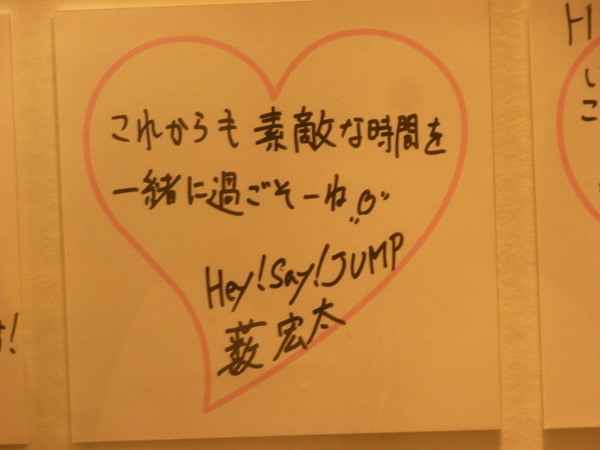 これからも素敵な時間を
一緒に過ごそーね
Hey!Say!JUMP
薮宏太
H
い
こ
!